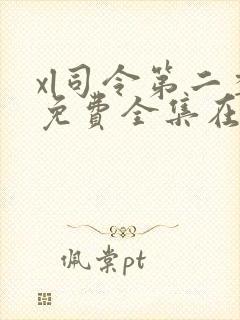 xl司令第二
免费全集在
佩棠pt